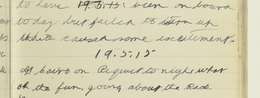 to have been on board
today but failed to turn up
which caused some excitement.
19.5.15
on August to night what
of the fun, going about the side